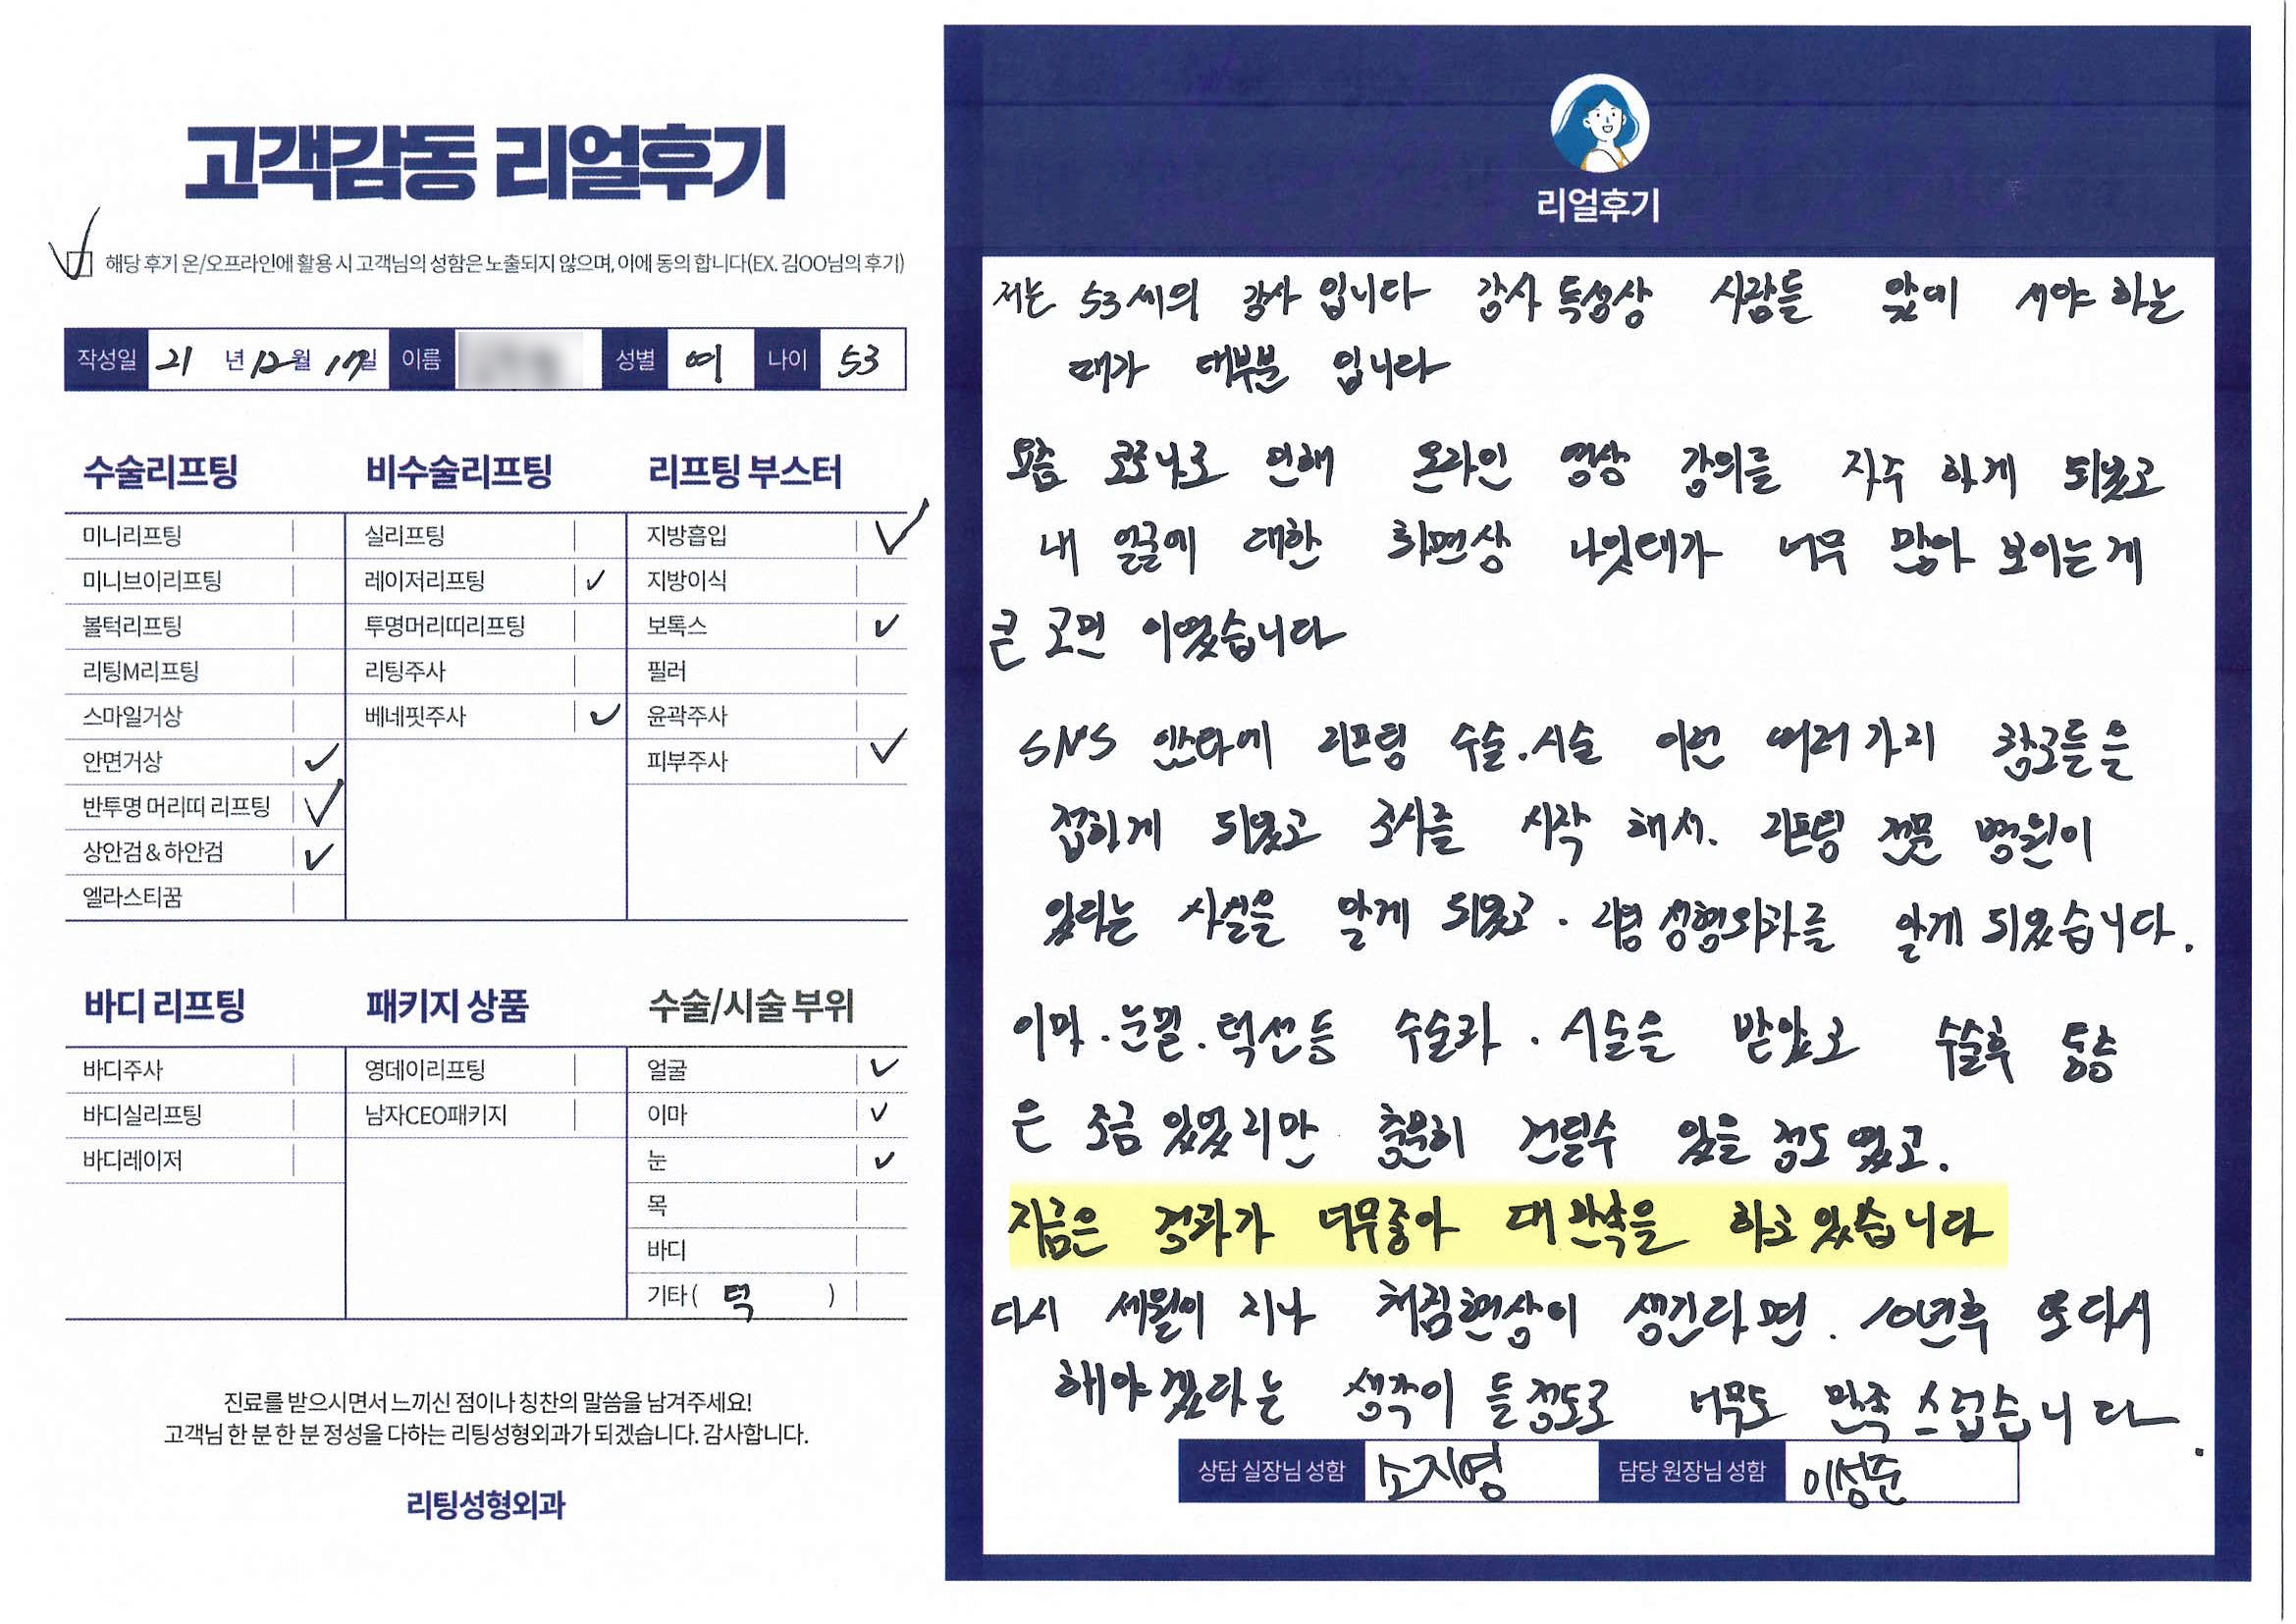 고객감동 리얼후기
해당 후기 온/오프라인에 활용 시 고객님의 성함은 노출되지 않으며, 이에 동의 합니다(EX. 김OO님의 후기)
작성일 21 년 12 월 17 일 이름 성별 여 나이 53
수술리프팅
미니리프팅
미니브이리프팅
볼턱리프팅
리팅M리프팅
스마일거상
안면거상 ✓
반투명 머리띠 리프팅 ✓
상안검 & 하안검 ✓
엘라스티꿈
비수술리프팅
실리프팅
레이저리프팅 ✓
투명머리띠리프팅
리팅주사
베네핏주사 ✓
리프팅 부스터
지방흡입 ✓
지방이식
보톡스 ✓
필러
윤곽주사
피부주사 ✓
바디 리프팅
바디주사
바디실리프팅
바디레이저
패키지 상품
영데이리프팅
남자CEO패키지
수술/시술 부위
얼굴 ✓
이마 ✓
눈 ✓
목
바디
기타 ( 턱 )
진료를 받으시면서 느끼신 점이나 칭찬의 말씀을 남겨주세요!
고객님 한 분 한 분 정성을 다하는 리팅성형외과가 되겠습니다. 감사합니다.
리팅성형외과
리얼후기
저는 53세의 강사 입니다 강사 특성상 사람들 앞에 서야 하는
때가 대부분 입니다
요즘 코로나로 인해 온라인 영상 강의를 자주 하게 되었고
내 얼굴에 대한 화면상 나잇대가 너무 많아 보이는게
큰 고민 이였습니다
SNS 인스타에 리프팅 수술.시술 이런 여러가지 광고들을
접하게 되었고 조사를 시작 해서. 리프팅 전문 병원이
있다는 사실을 알게 되었고. 리팅 성형외과를 알게 되었습니다.
이마.눈밑.턱선등 수술과.시술을 받았고 수술후 통증
은 조금 있었지만 충분히 견딜수 있을 정도 였고.
지금은 결과가 너무좋아 대만족을 하고 있습니다
다시 세월이 지나 처짐현상이 생긴다면. 10년후 또 다시
해야겠다는 생각이 들정도로 너무도 만족 스럽습니다.
상담 실장님 성함 소지영 담당 원장님 성함 이성준